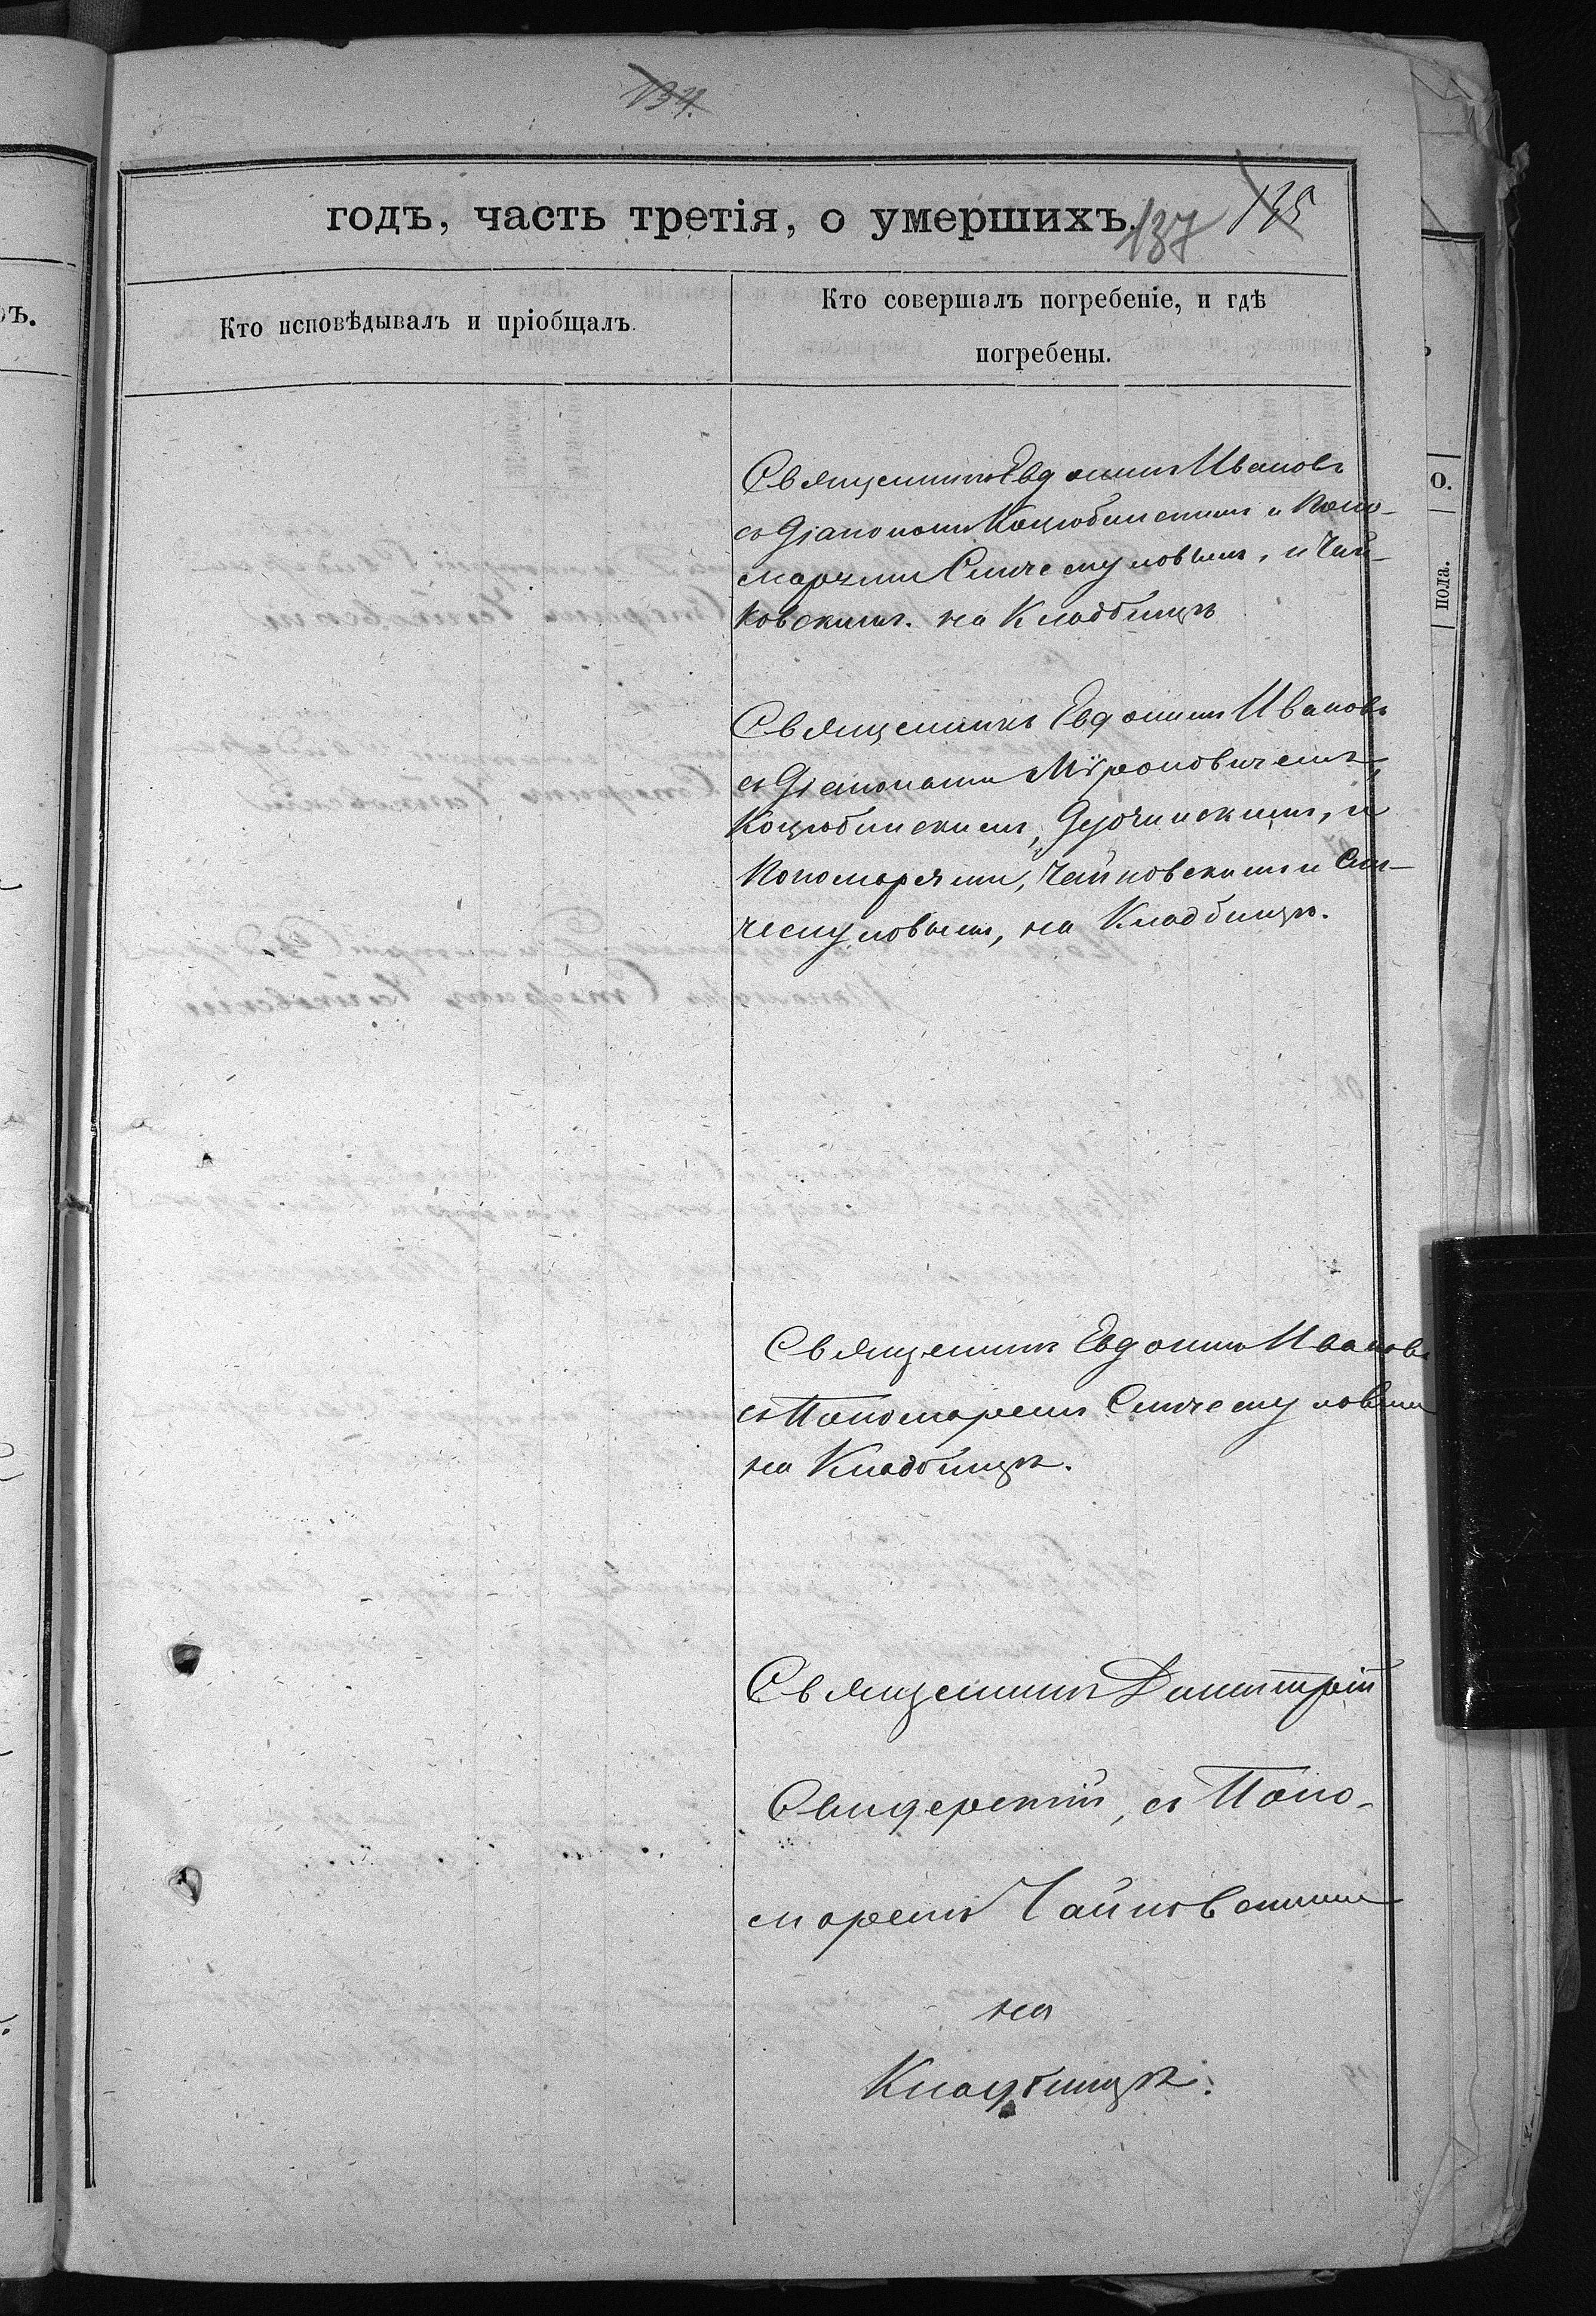 134.
годъ, часть третія, о умершихъ.
137
135
Кто исповѣдывалъ и пріобщалъ.
Кто совершалъ погребеніе, и гдѣ
погребены.
Священникъ Евдокимъ Ивановъ
съ Діакономъ Коцюбинскимъ и Поно-
марями Синчесуловымъ, и Чай-
ковскимъ. на Кладбищѣ
Священникъ Евдокимъ Ивановъ
съ Діаконами Мѵроновичемъ,
Коцюбинскимъ, и
Пономарями, Чайковскимъ и Син-
чесуловымъ, на Кладбищѣ.
Священникъ Евдокимъ Ивановъ
съ Пономаремъ Синчесуловымъ
на Кладбищѣ.
Священникъ Димитрій
Свидерскій, съ Поно-
маремъ Чайковскимъ
на
Кладбищѣ.
ъ.
о.
пола.